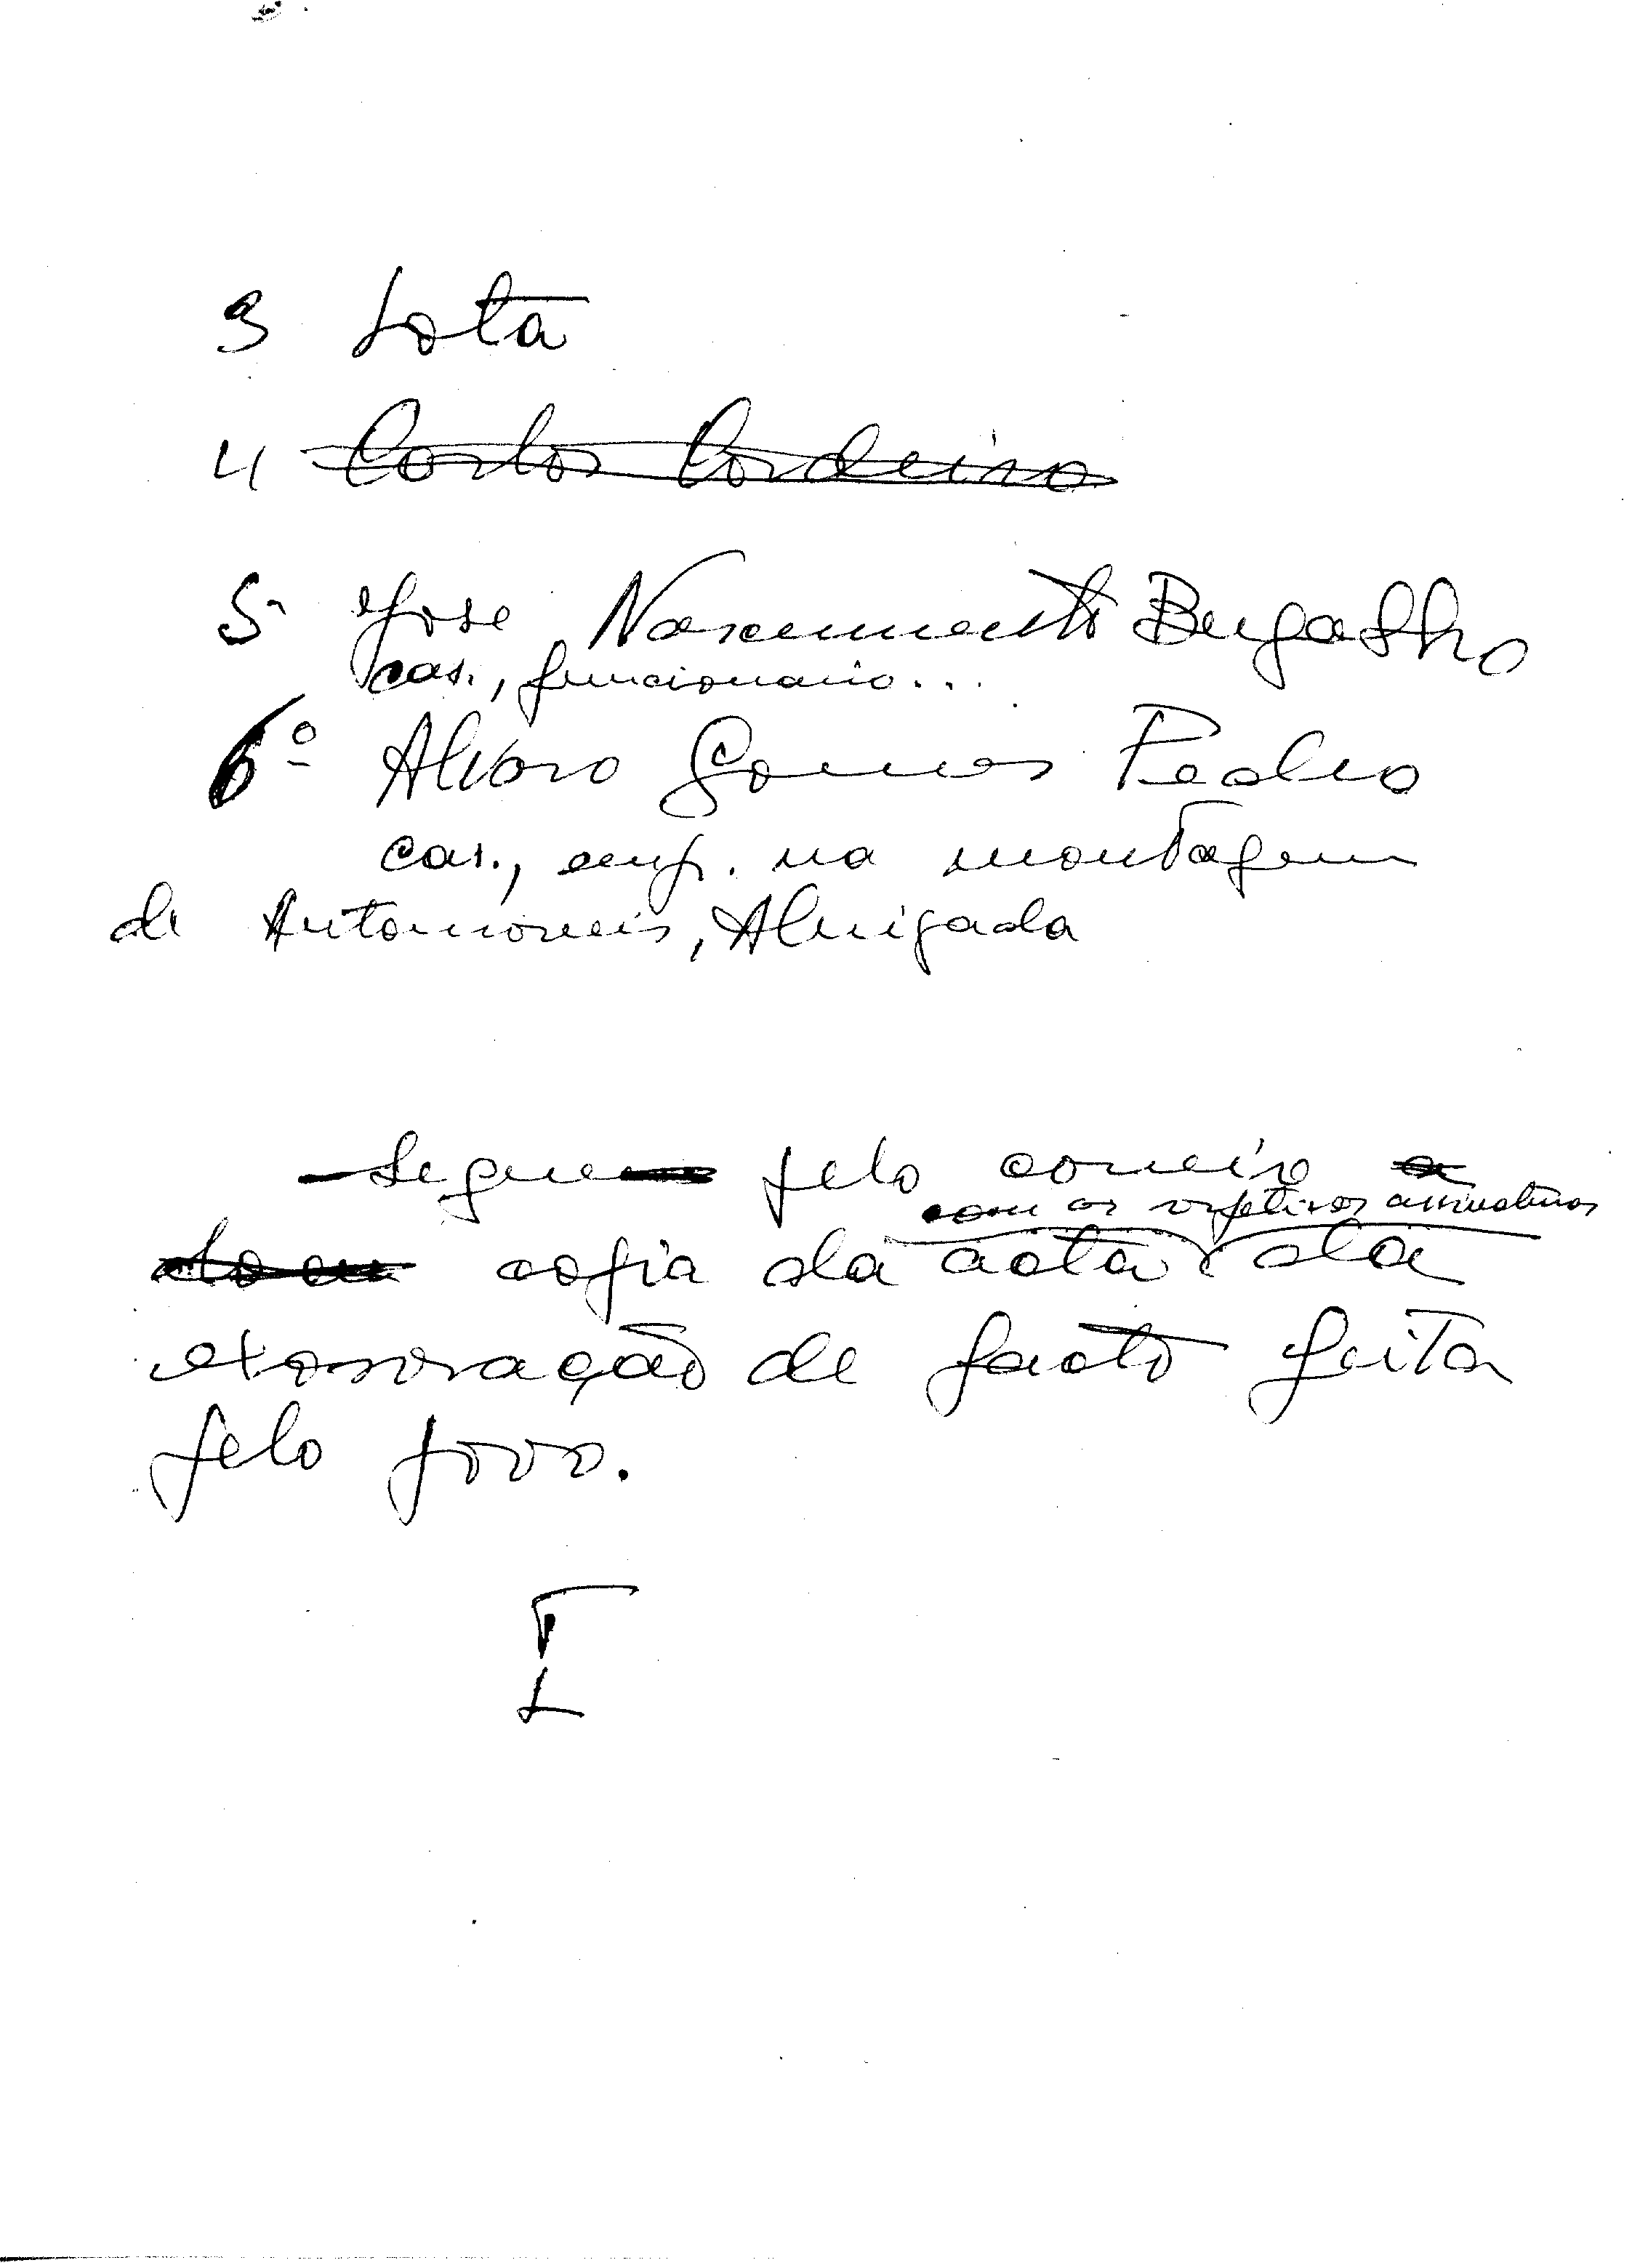 3 Lota
4 Carlos Cordeiro
5º Jose Nascimento Bergalho
cas., funcionario...
6º Alvaro Gomes Pedro
cas., emp. na montagem
de Automoveis, Abrigada
- Segue pelo correio a
com as respetivas assinaturas
copia da acta da
exoneração de facto feita
pelo povo.